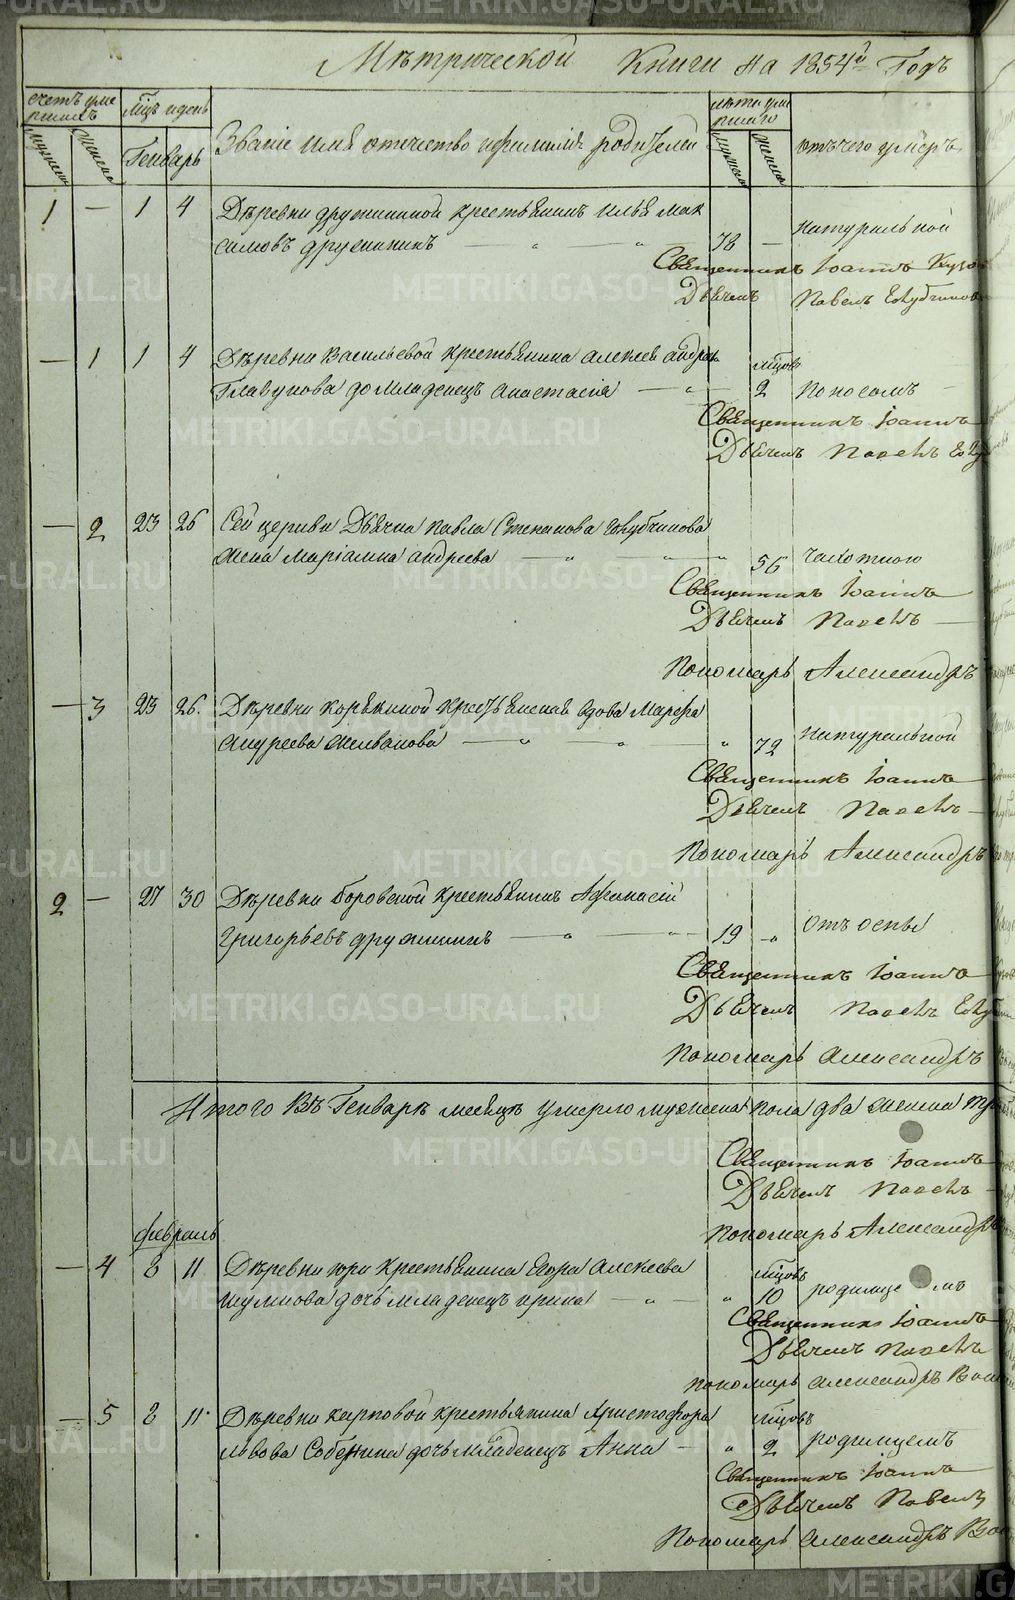 Метрической Книги на 1854й Годъ
счетъ уме
ршихъ
Мѣсц и день
Званіе имя отечество и фамилія родителей
лѣта уме
ршаго
отъ чего умеръ
мужеска женска Генварь мужеска женска
1 — 1 4 Деревни дружининой крестьянинъ Илья Мак
симовъ дружининъ — „ — „ 78 — натуральной
Священникъ Іоаннъ
Дьячекъ Павелъ
— 1 1 4 Деревни Васильевой крестьянина Алексея Андре
мѣцовъ
Главунова дочь младенецъ Анастасія — „ — 2 поносомъ —
Священникъ Іоаннъ
Дьячекъ Павелъ
— 2 23 26 Сей церкви Дьячка Павла Степанова
жена Маріамна Андреева — „ „ „ 56 чахотною
Священникъ Іоаннъ
Дьячекъ Павелъ —
Пономарь Александръ
— 3 23 26. Деревни Корюкиной крестьянская вдова Марфа
Андреева — „ — „ — „ 72 натуральной
Священникъ Іоаннъ
Дьячекъ Павелъ —
Пономарь Александръ
2 — 27 30 Деревни Боровской крестьянинъ Афанасій
Григорьевъ дружининъ — „ — „ 19 „ отъ оспы
Священникъ Іоаннъ
Дьячекъ Павелъ
Пономарь Александръ
Итого Въ Генваре месяце умерло мужеска пола два женска
Священникъ Іоаннъ
Дьячекъ Павелъ —
февраль
Пономарь Александръ
— 4 8 11 Деревни крестьянина Егора Алексеева
мѣцовъ
Шумкова дочь младенецъ Ирина — „ — „ 10 родимце мъ
Священникъ Іоаннъ
Дьячекъ Павелъ
Пономарь Александръ
— 5 8 11. Деревни Карповой крестьянина Христофора
мѣцовъ
Львова дочь младенецъ Анна — „ 2 родимцемъ
Священникъ Іоаннъ
Дьячекъ Павелъ
Пономарь Александръ
METRIKI.GASO-URAL.RU